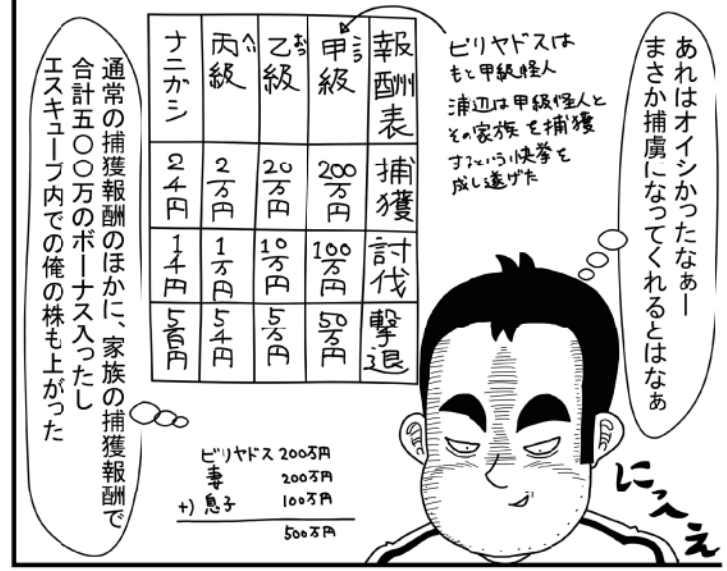 あれはオイシかったなぁー
まさか捕虜になってくれるとはなぁ
ビリヤドスは
もと甲級怪人
浦辺は甲級怪人と
その家族を捕獲
するという快挙を
成し遂げた
報酬表
捕獲
討伐
撃退
甲級
こう
200万円
100万円
50万円
乙級
おつ
20万円
10万円
5万円
丙級
へい
2万円
1万円
5千円
ナニガシ
2千円
1千円
5百円
通常の捕獲報酬のほかに、家族の捕獲報酬で
合計五〇〇万のボーナス入ったし
エスキューブ内での俺の株も上がった
ビリヤドス 200万円
妻 200万円
+) 息子 100万円
500万円
にへえ